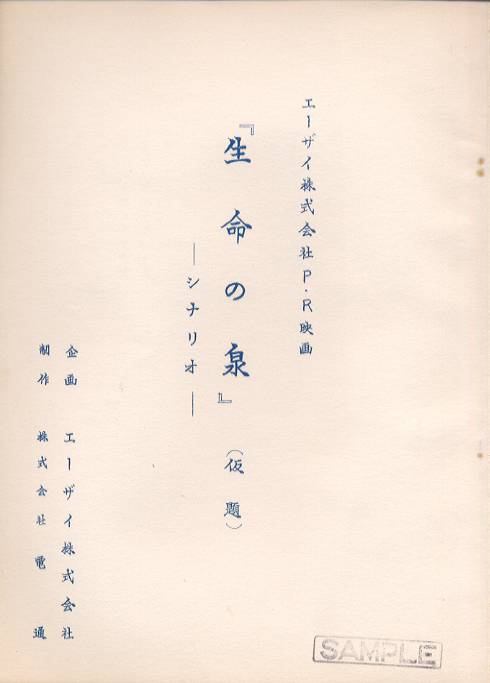 エーザイ株式会社P・R映画
『生命の泉』(仮題)
―シナリオ―
企画 エーザイ株式会社
制作 株式会社電通
SAMPLE